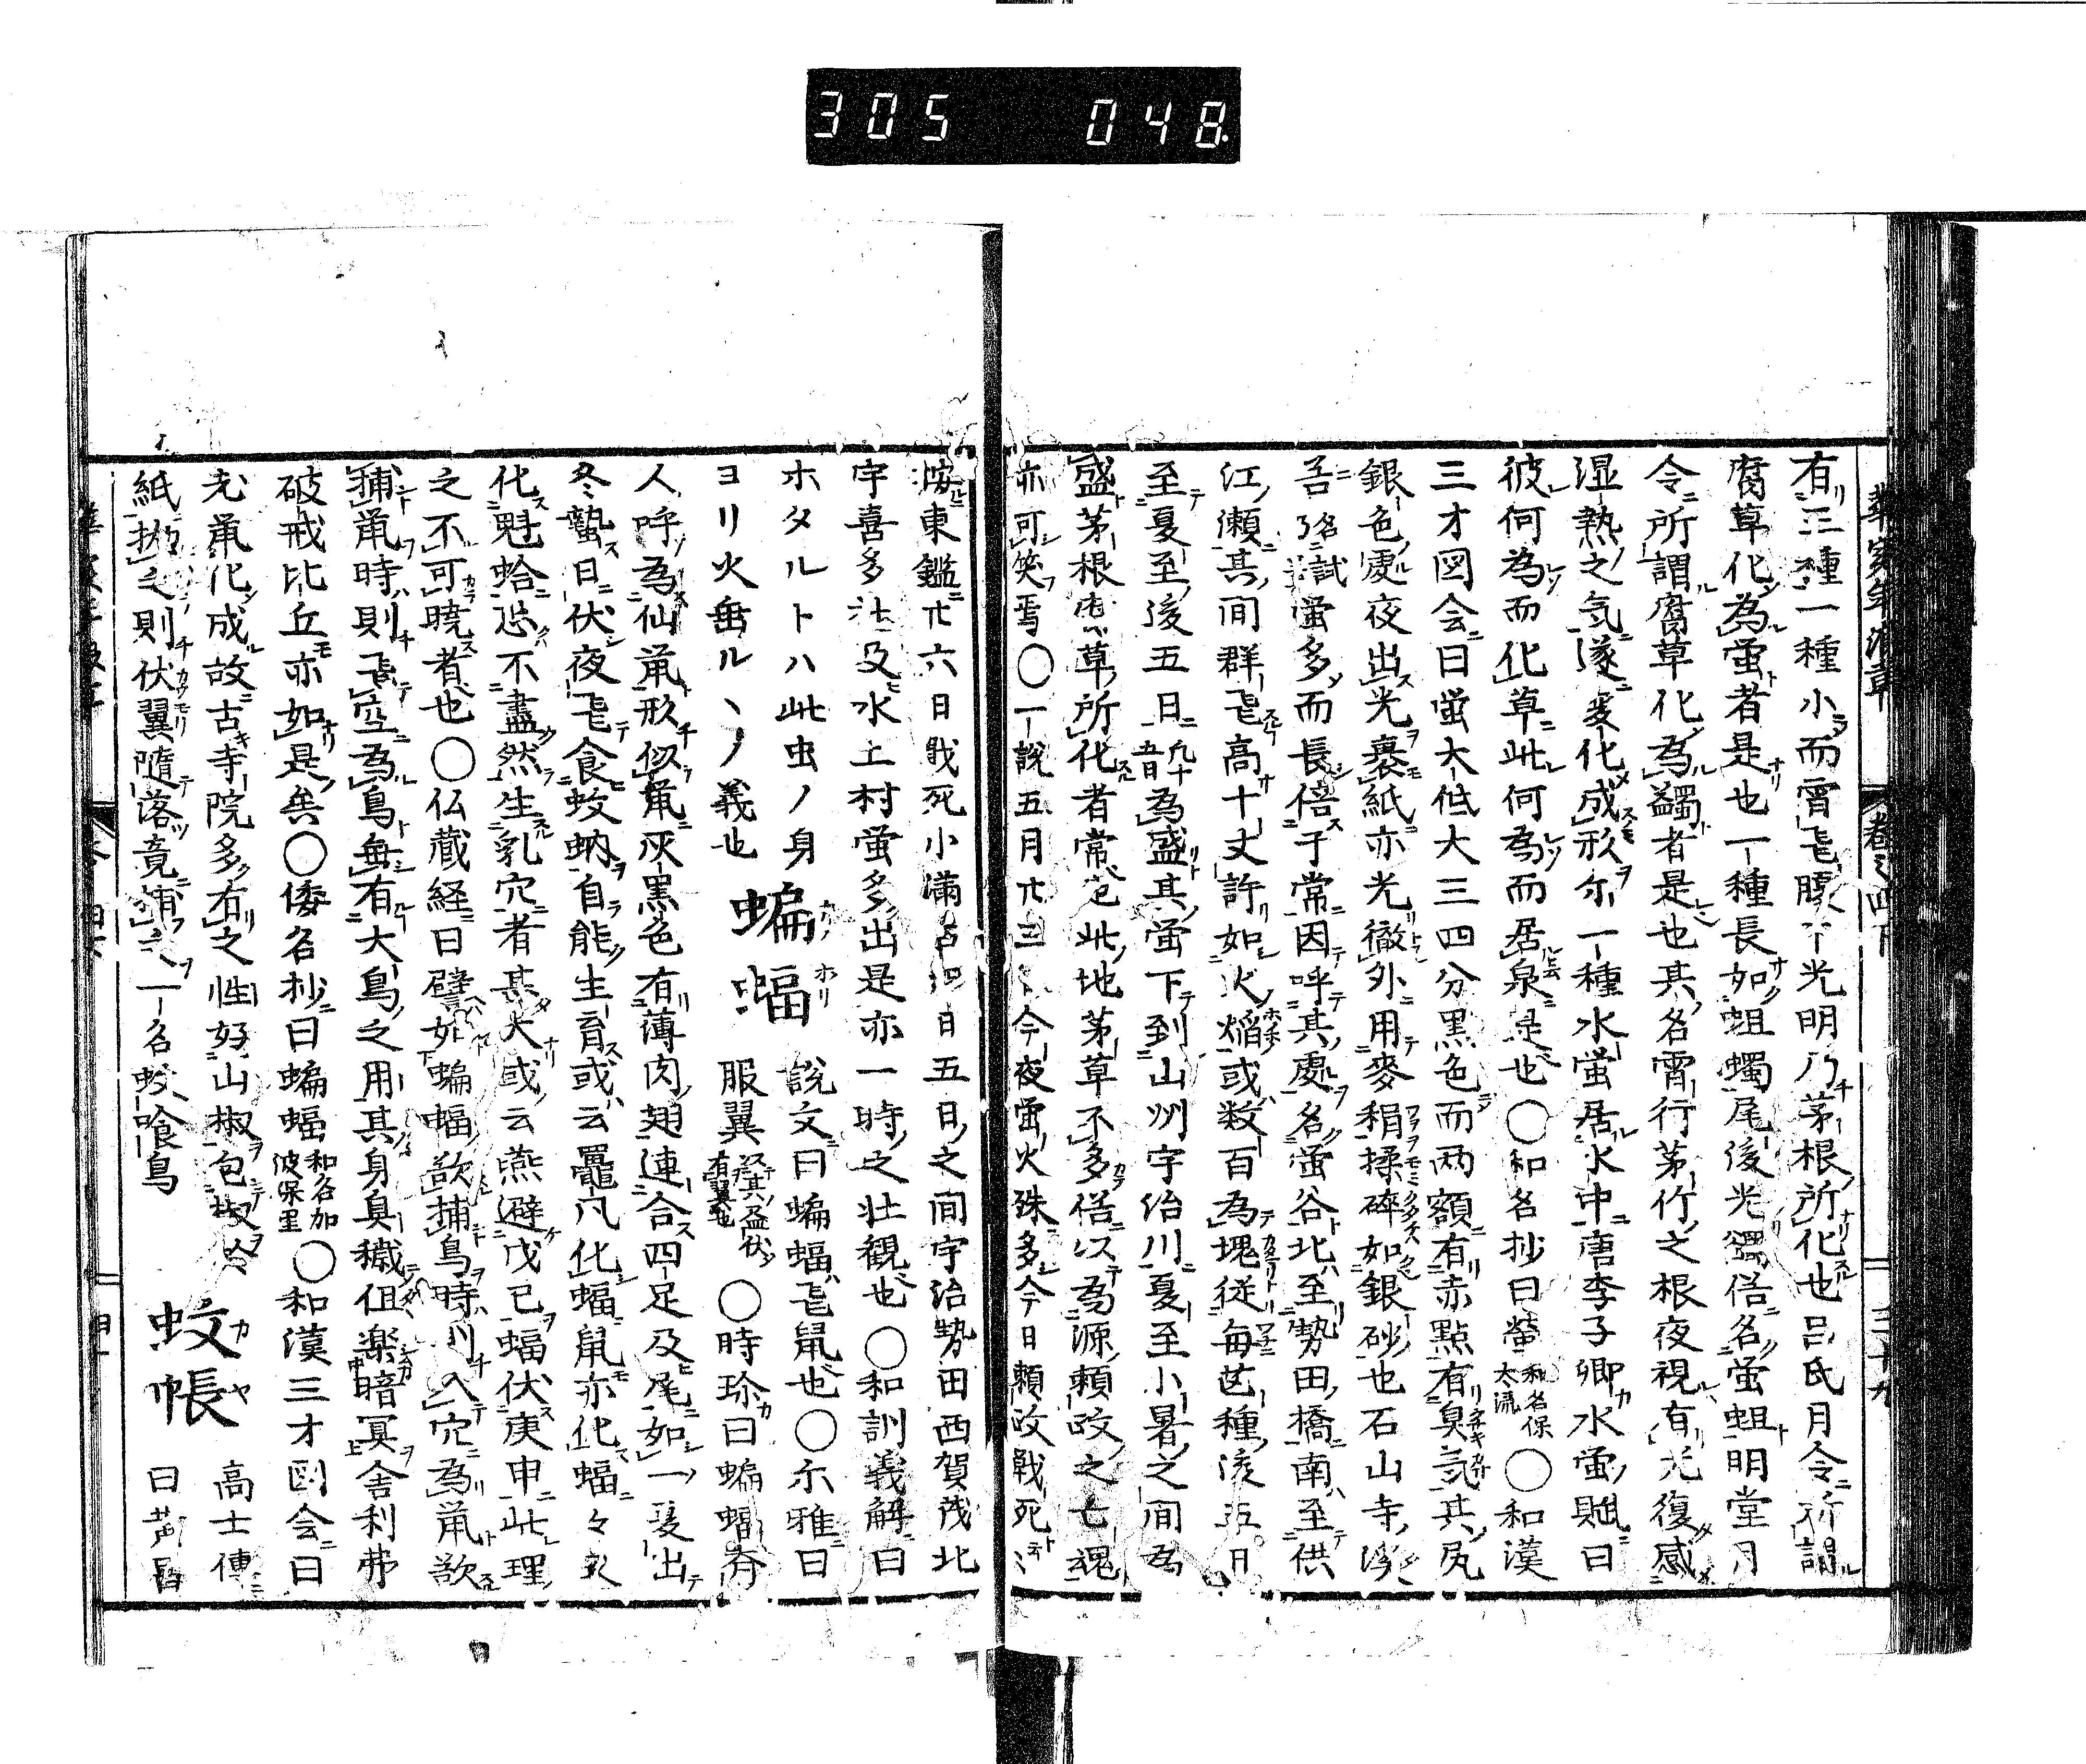 305 048
卷之四下
有三種一種小而宵飛腹下光明乃茅根所化也呂氏月令所謂
腐草化為蛍者是也一種長如蛆蠋尾後光無翼名蛍蛆明堂月
令所謂腐草化為蠲者是也其名宵行茅竹之根夜視有光復感
湿熱之気遂変化成形尓一種水蛍居水中唐李子卿水蛍賦曰
彼何為而化草此何為而居泉是也〇和名抄曰螢和名保太流〇和漢
三才図会曰蛍大低大三四分黒色而両額有赤點有臭気其尻
銀色處夜出光裹紙亦光徹外用麥稈揉碎如銀砂也石山寺溪
名試蛍多而長倍于常因呼其處名蛍谷北至勢田橋南至供
江瀬其間群飛高十丈許如火焔或数百為塊従毎芒種後五日
至夏至後五日凡十五日為盛其蛍下到山州宇治川夏至小暑之間為
盛茅根腐草所化者常也此地茅草不多俗以為源頼政之亡魂
亦可笑焉〇一説五月廿三今夜蛍火殊多今日頼政戦死
按東鑑廿六日戦死小満五日之間宇治勢田西賀茂北
宇喜多辻及水上村蛍多出是亦一時之壮観也〇和訓義解曰
ホタルトハ此虫ノ身
ヨリ火垂ルヽノ義也
蝙蝠
カハホリ
説文曰蝙蝠飛鼠也〇尓雅曰
服翼以其盈伏有翼也〇時珍曰蝙蝠斉
人呼為仙鼠形似鼠灰黒色有薄肉翅連合四足及尾如一夏出
冬蟄日伏夜飛食蚊蚋自能生育或云鼉虱化蝠鼠亦化蝠々又
化魁蛤恐不盡然生乳穴者甚大或云燕避戊已蝠伏庚申此理
之不可暁者也〇仏蔵経曰譬如蝙蝠欲捕鳥時則入穴為鼠欲
捕鼠時則飛空為鳥無有大鳥之用其身臭穢但楽暗冥舎利弗
破戒比丘亦如是矣〇倭名抄曰蝙蝠和名加波保里〇和漢三才図会曰
老鼠化成故古寺院多有之性好山椒包椒於
紙抛之則伏翼隨落竟捕之一名蚊喰鳥
蚊帳
カヤ
高士傳
曰